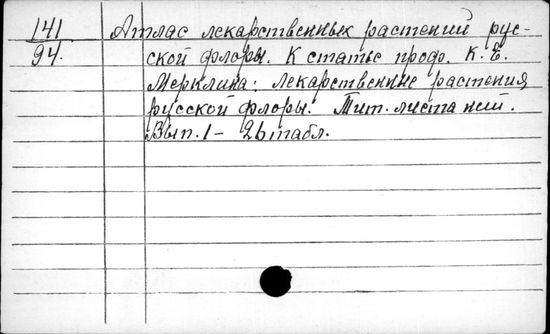 141 Атлас лекарственных растений рус-
94. ской флоры. К статье проф. К. Е.
Мерклина: Лекарственные растения
русской флоры. Тит. листа нет.
Вып. 1 - 26 табл.